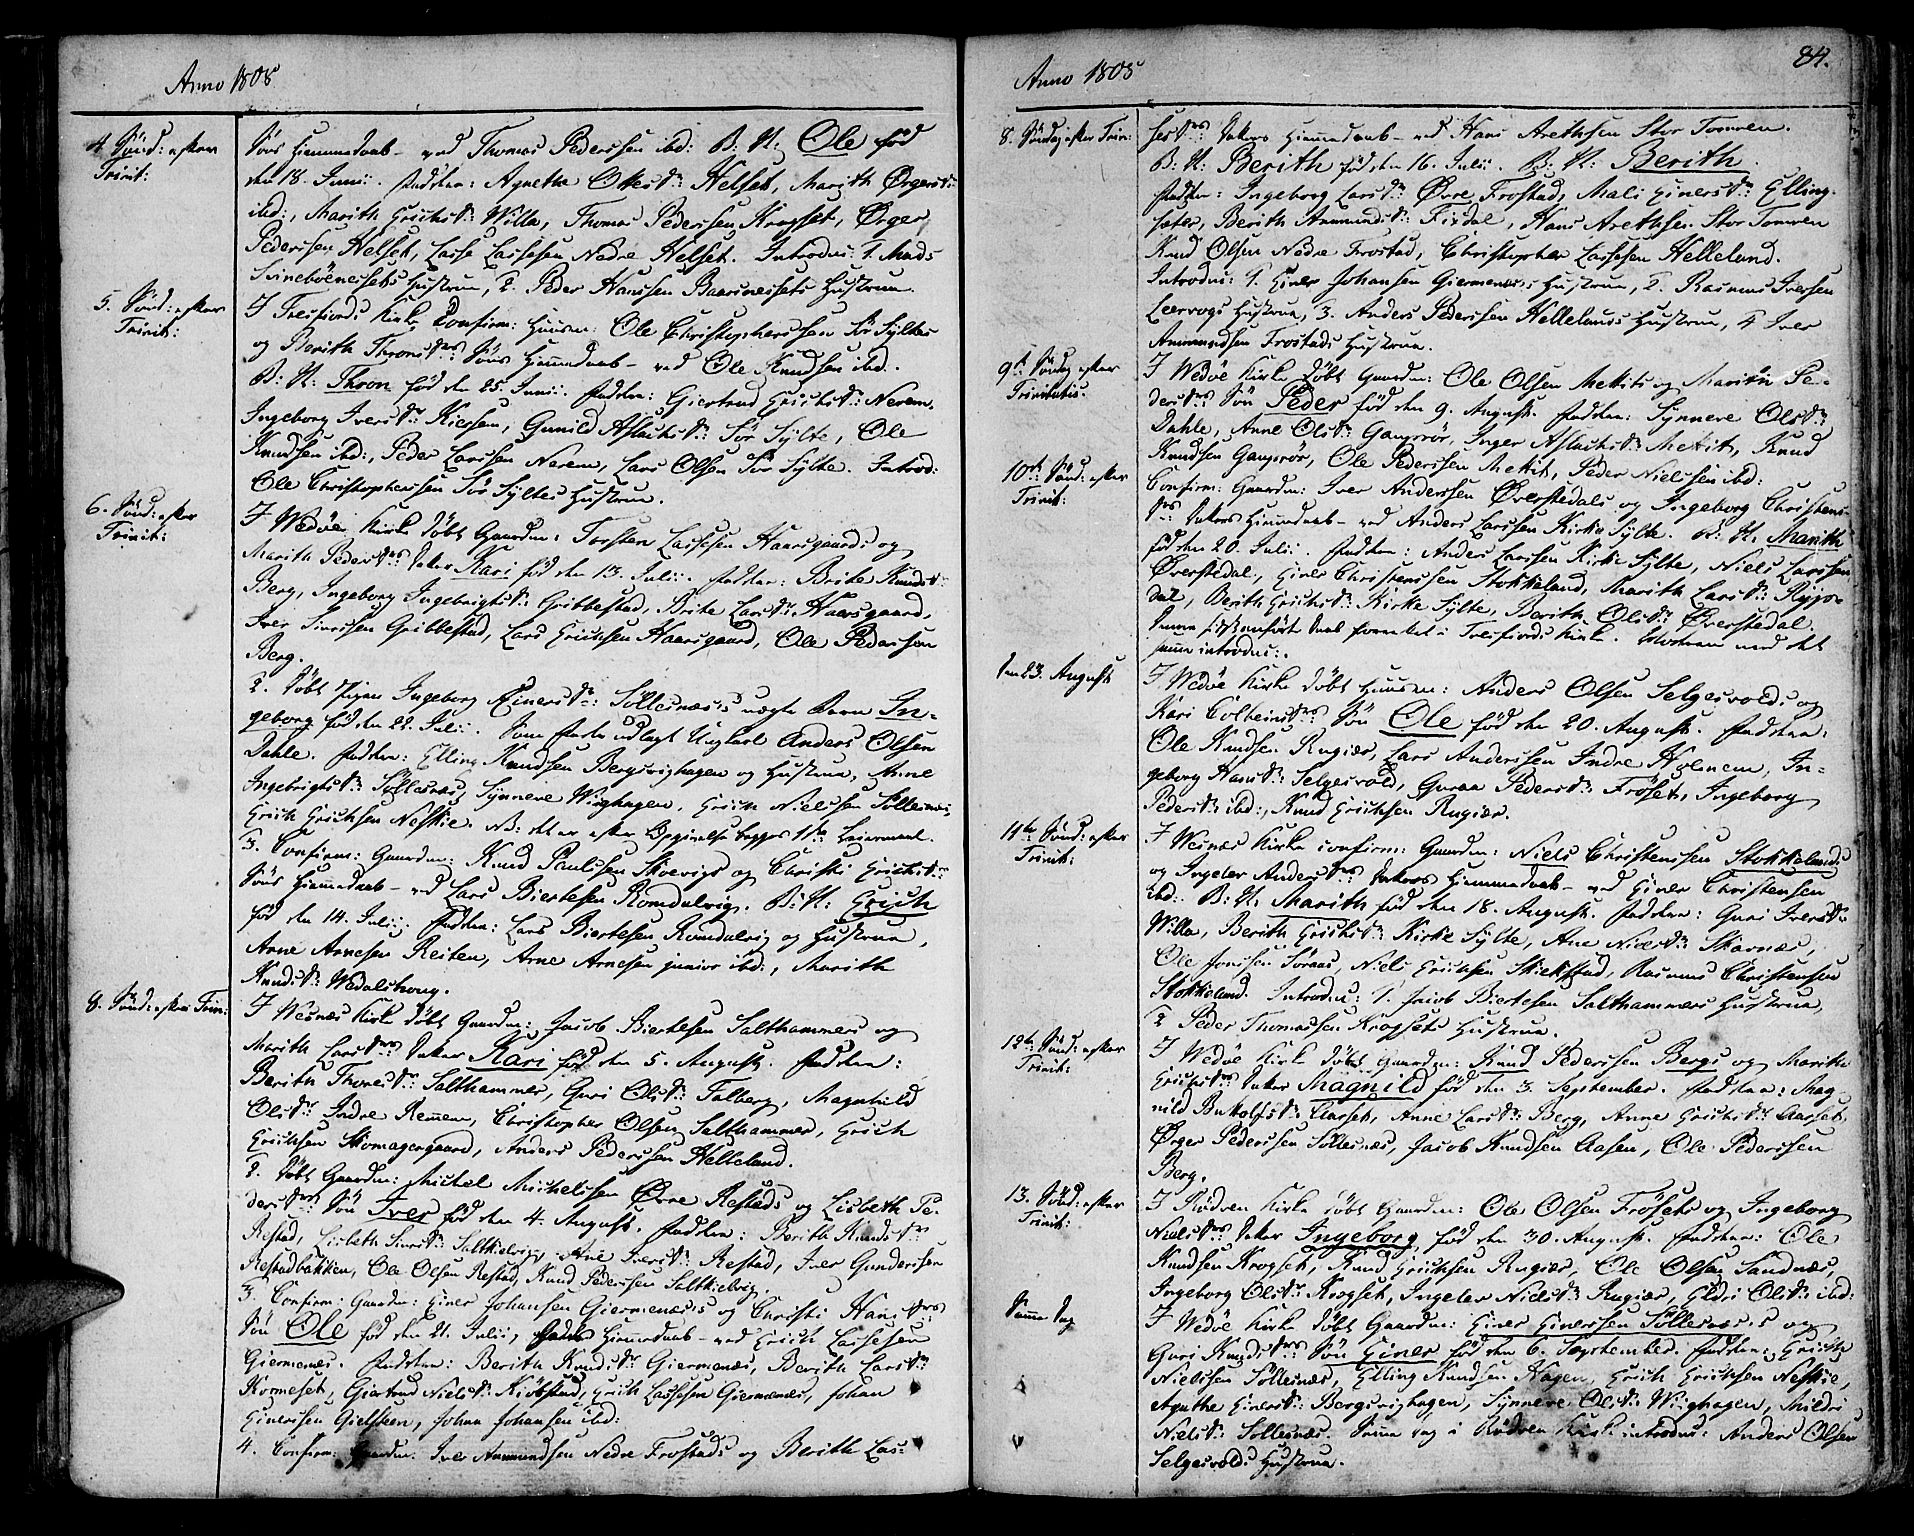 Anno 1808
4. Sönd: efter
Trinit:
Söns Hiemmedaab – ved Thomas Pederssen ibd: B: N: Ole föd
den 18. Junii. Faddere: Agnethe Olesdr: Helset, Marith Örgersdr:
ibd:, Marith Erichsdr: Willa, Thomas Pederssen Krogset, Örger
Pederssen Helset, Lasse Lassesen Nedre Helset. Introdu: 1. Mads
Svineböeneesets Hustrue, 2. Peder Hanssen Baarsnessets Hustrue.
5. Sönd: efter
Trinit:
I Tresfiords Kirke Confirm: Huusm: Ole Christopherssen Sör Syltes
og Berith Thronsdrs: Söns Hiemmedaab – ved Ole Knudsen ibd.
B: N: Thron föd den 25. Junii. Faddere: Giertrud Erichsdr: Nerem,
Ingeborg Iversdr: Kiersem, Gunild Aslachsdr: Sör Sylte, Ole
Knudsen ibd:, Peder Larssen Nerem, Lars Olsen Sör Sylte. Introd:
Ole Christopherssen Sör Syltes Hustrue.
6. Sönd: efter
Trinit:
I Wedöe Kirke döbt Gaardm: Torsten Lassesen Haarsgaards og
Marith Pedersdrs: Datter Kari föd den 13. Julii. Faddere: Brite Knudsdr:
Berg, Ingeborg Ingebrigtsdr: Gribbestad, Brite Larsdr: Haarsgaard,
Iver Iverssen Gribbestad, Lars Erichsen Haarsgaard, Ole Pederssen
Berg.
2. Döbt Pigen Ingeborg Einersdr: Sollesnæs's uægte Barn In-
geborg föd den 22. Julii. Som Fader udlagt Ungkarl Anders Olsen
Dahle. Faddere: Elling Knudsen Bergsvighagen og Hustrue, Anne
Ingebrigtsdr: Sollesnæs, Synneve Wiighagen, Erich Nielssen Sollesnæs,
Erich Erichsen Neskie. NB: det er efter Opgivelse begges 1ste Leiermaal.
3. Confirm: Gaardm: Knud Paulsen Skoevigs og Christi Erichsdrs:
Söns Hiemmedaab – ved Lars Biertesen Romdalsvig. B: N: Erich
föd den 14. Julii. Faddere: Lars Biertesen Romdalsvig og Hustrue,
Arne Arnesen Reiten, Arne Arnesen junior ibd:, Marith
Knudsdr: Wedalshoug.
8. Sönd: efter Trin:
I Wesnæs Kirke döbt Gaardm: Jacob Biertesen Salthammers og
Marith Larsdrs: Datter Kari föd den 5. August. Faddere:
Berith Thoresdr: Salthammer, Guri Olsdr: Talberg, Magnhild
Olsdr: Indre Remem, Christopher Olsen Salthammer, Erich
Erichsen Skomagergaard, Anders Pederssen Helleland.
2. Döbt Gaardm: Michel Michelssen Övre Restads og Lisbeth Pe-
dersdrs: Sön Iver föd den 4. August. Faddere: Berith Knudsdr:
Restad, Lisbeth Iversdr: Saltkielvig, Ane Iversdr: Restad, Iver Gunderssen
Restadbakken, Ole Olsen Restad, Knud Pederssen Saltkielvig.
3. Confirm: Gaardm: Einer Johansen Giermenæs's og Christi Hansdrs:
Sön Ole föd den 21. Julii, Hiemmedaab – ved Erich Lassesen
Giermenæs. Faddere: Berith Knudsdr: Giermenæs, Berith Larsdr:
Korneset, Giertrud Nielsdr: Kiöbstad, Erich Lassesen Giermenæs, Johan
Einerssen Gielsteen, Johan Johansen ibd:
4. Confirm: Gaardm: Iver Ammundsen Nedre Frostads og Berith Las-
Anno 1808
84.
8. Söndag efter Trin:
sesdrs: Datters Hiemmedaab – ved Hans Arethsen Stor Tomren.
B: N: Berith föd den 16. Julii. B: N: Berith.
Faddere: Ingeborg Larsdr: Övre Frostad, Mali Einersdr: Elling-
sæter, Berith Ammundsdr: Fixdal, Hans Arethsen Stor Tomren
Knud Olsen Nedre Frostad, Christopher Lassesen Helleland.
Introdu: 1. Einer Johansen Giermenæs's Hustrue, 2. Rasmus Iversen
Leervogs Hustrue, 3. Anders Pederssen Hellelands Hustrue, 4 Iver
Ammundsen Frostads Hustrue.
9de Söndag efter
Trinitatis.
I Wedöe Kirke döbt Gaardm: Ole Olsen Mekits og Marith Pe-
dersdrs: Sön Peder föd den 9. August. Faddere: Synneve Olsdr:
Dahle, Anne Olsdr: Gangsrör, Inger Aslachsdr: Mekit, Knud
Knudsen Gangsrör, Ole Pederssen Mekit, Peder Nielssen ibd:
10de Sönd: efter
Trinit:
Confirm: Gaardm: Iver Anderssen Överstedals og Ingeborg Christens-
drs: Datters Hiemmedaab – ved Anders Larssen Kirke Sylte. B: N: Marith
föd den 20. Julii. Faddere: Anders Larssen Kirke Sylte, Niels Larssen
Överstedal, Einer Christenssen Stokkeland, Marith Larsdr: Ryps-
dal, Berith Erichsdr: Kirke Sylte, Berith Olsdr: Överstedal.
Denne sidstanförte Daab forrettet i Tresfiords Kirke. Moderen med det
samme introdu:.
Den 23. August
I Wedöe Kirke döbt Huusm: Anders Olsen Selgesvolds og
Kari Colbeinsdrs: Sön Ole föd den 20. August. Faddere:
Ole Knudsen Rugiær, Lars Anderssen Indre Holmem, In-
geborg Hansdr: Selgesvold, Guraa Pedersdr: Fröset, Ingeborg
Pedersdr: ibd:, Knud Erichsen Rugiær.
11te Sönd: efter
Trinit:
I Wesnæs Kirke confirm: Gaardm: Niels Christenssen Stokkelands
og Ingeler Andersdrs: Datters Hiemmedaab – ved Einer Christensen
ibd. B: N: Marith föd den 18. August. Faddere: Guri Iversdr:
Willa, Berith Erichsdr: Kirke Sylte, Ane Nielsdr: Skarnæs,
Ole Jonssen Soraas, Niels Erichsen Skiekstad, Rasmus Christensen
Stokkeland. Introdu: 1. Jacob Biertesen Salthammers Hustrue,
2 Peder Thomassen Krogsets Hustrue.
12te Sönd: efter
Trinit:
I Wedöe Kirke döbt Gaardm: Knud Pederssen Bergs og Marith
Erichsdrs: Datter Magnild föd den 3. September. Faddere: Mag-
nild Botolfsdr: Aarset, Anne Larsdr: Berg, Anne Erichsdr: Aarset,
Örger Pederssen Sollesnæs, Jacob Knudsen Aasen, Ole Pederssen
Berg.
13. Sönd: efter
Trinit:
I Rödven Kirke döbt Gaardm: Ole Olsen Frösets og Ingeborg
Nielsdrs: Datter Ingeborg föd den 30. August. Faddere: Ole
Knudsen Krogset, Knud Erichsen Rugiær, Ole Olsen Sandnæs,
Ingeborg Olsdr: Krogset, Ingeler Nielsdr: Rugiær, Eldri Olsdr: ibd:
Samme Dag
I Wedöe Kirke döbt Gaardm: Einer Einerssen Sollesnæs's og
Guri Knudsdrs: Sön Einer föd den 6. September. Faddere: Erich
Nielssen Sollesnæs, Elling Knudsen Hagen, Erich Erichsen Neskie,
Agathe Einersdr: Bergsvighagen, Synneve Olsdr: Wiighagen, Mildri
Nielsdr: Sollesnæs. Samme Dag i Rödven Kirke introdu: Anders Olsen
Selgesvolds Hustrue.